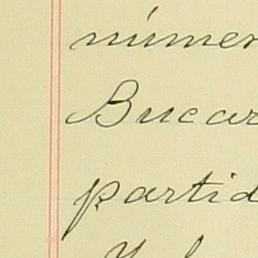 númer
Bucar
partid